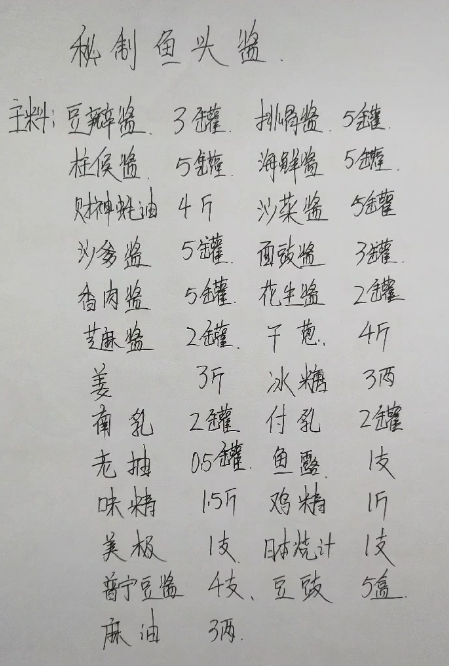 秘制鱼头酱.
主料: 豆瓣酱. 3罐. 排骨酱. 5罐.
柱侯酱. 5罐. 海鲜酱 5罐.
财神蚝油 4斤 沙菜酱 5罐
沙爹酱 5罐. 面豉酱 3罐.
香肉酱 5罐. 花生酱 2罐
芝麻酱 2罐. 干葱. 4斤
姜 3斤 冰糖 3两
南乳 2罐 付乳 2罐
老抽 0.5罐. 鱼露 1支
味精 1.5斤 鸡精 1斤
美极 1支. 日本烧汁 1支
普宁豆酱 4支、豆豉 5盒
麻油 3两.